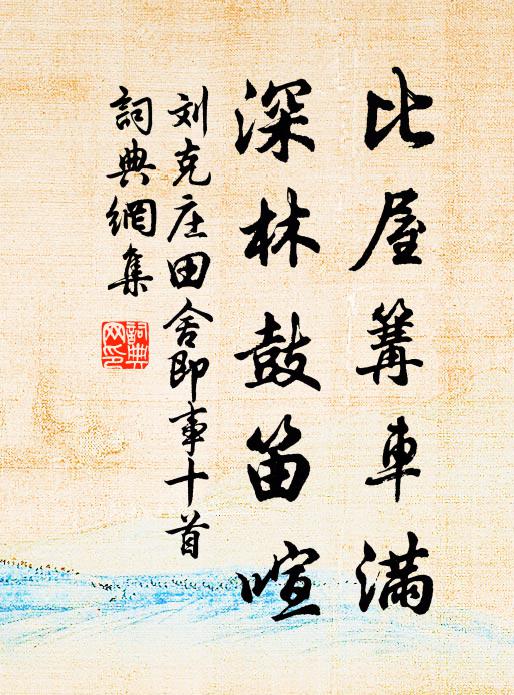 比屋篝車滿
深林鼓笛喧
刘克庄田舍即事十首
詞典網集
詞典
网印